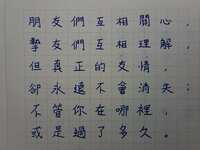 朋友們互相關心，
摯友們互相理解，
但真正的友情，
卻永遠不會消失；
不管你在哪裡，
或是過了多久。